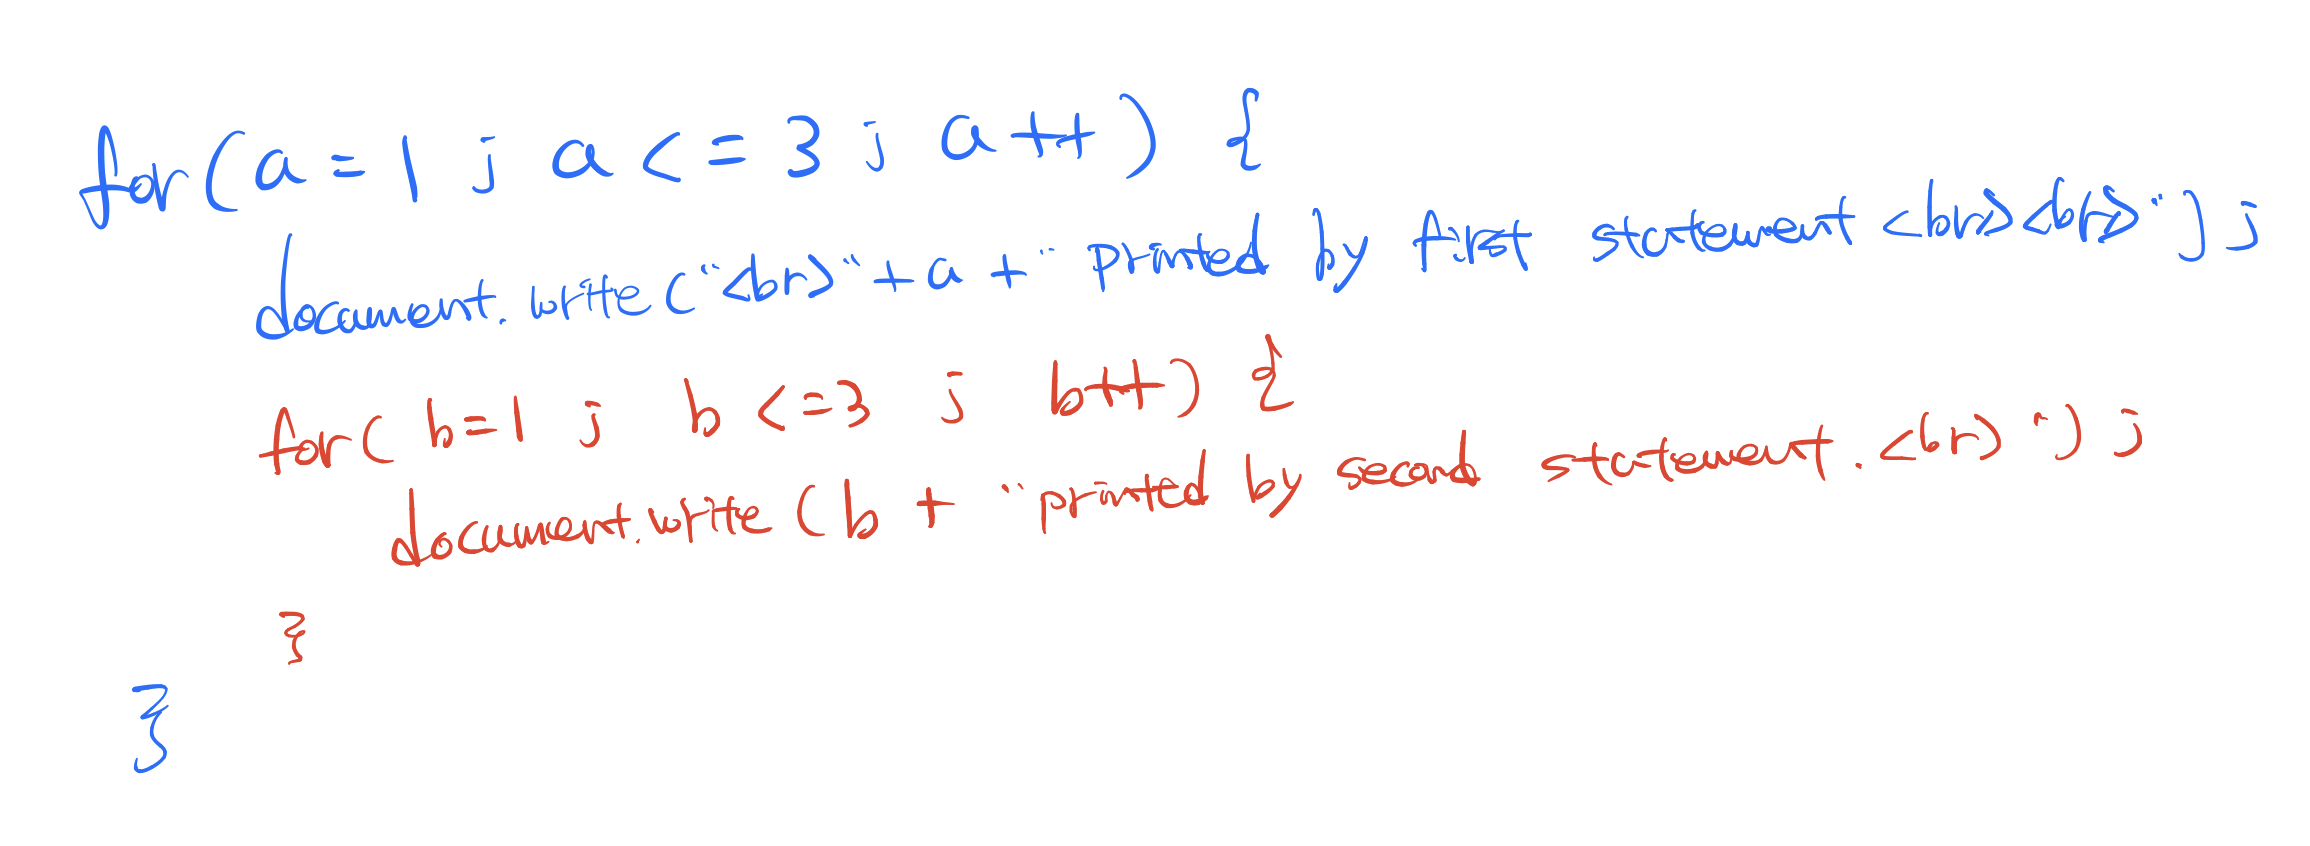 for(a=1 ; a<=3 ; a++) {
document.write("<br>"+a+" printed by first statement <br><br>");
for( b=1 ; b<=3 ; b++) {
document.write(b + "printed by second statement.<br>");
}
}